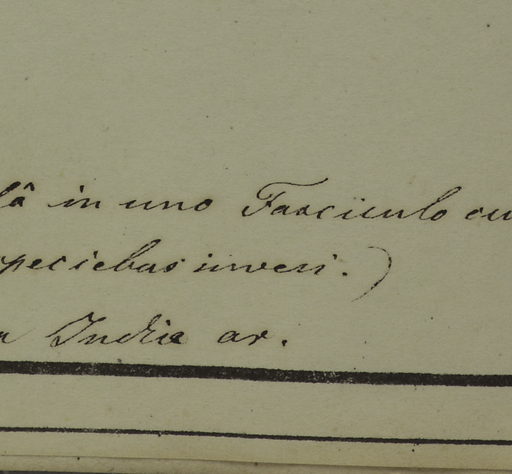 lâ in uno Fasciculo cu
speciebus inveni.)
a Indiæ or.